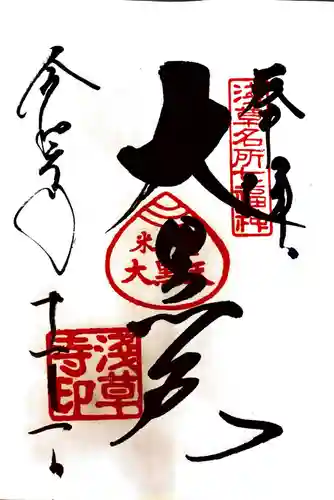 奉拝
浅草名所七福神
大黒天
米
大黒天
令和元年
十一月一日
浅草
寺印